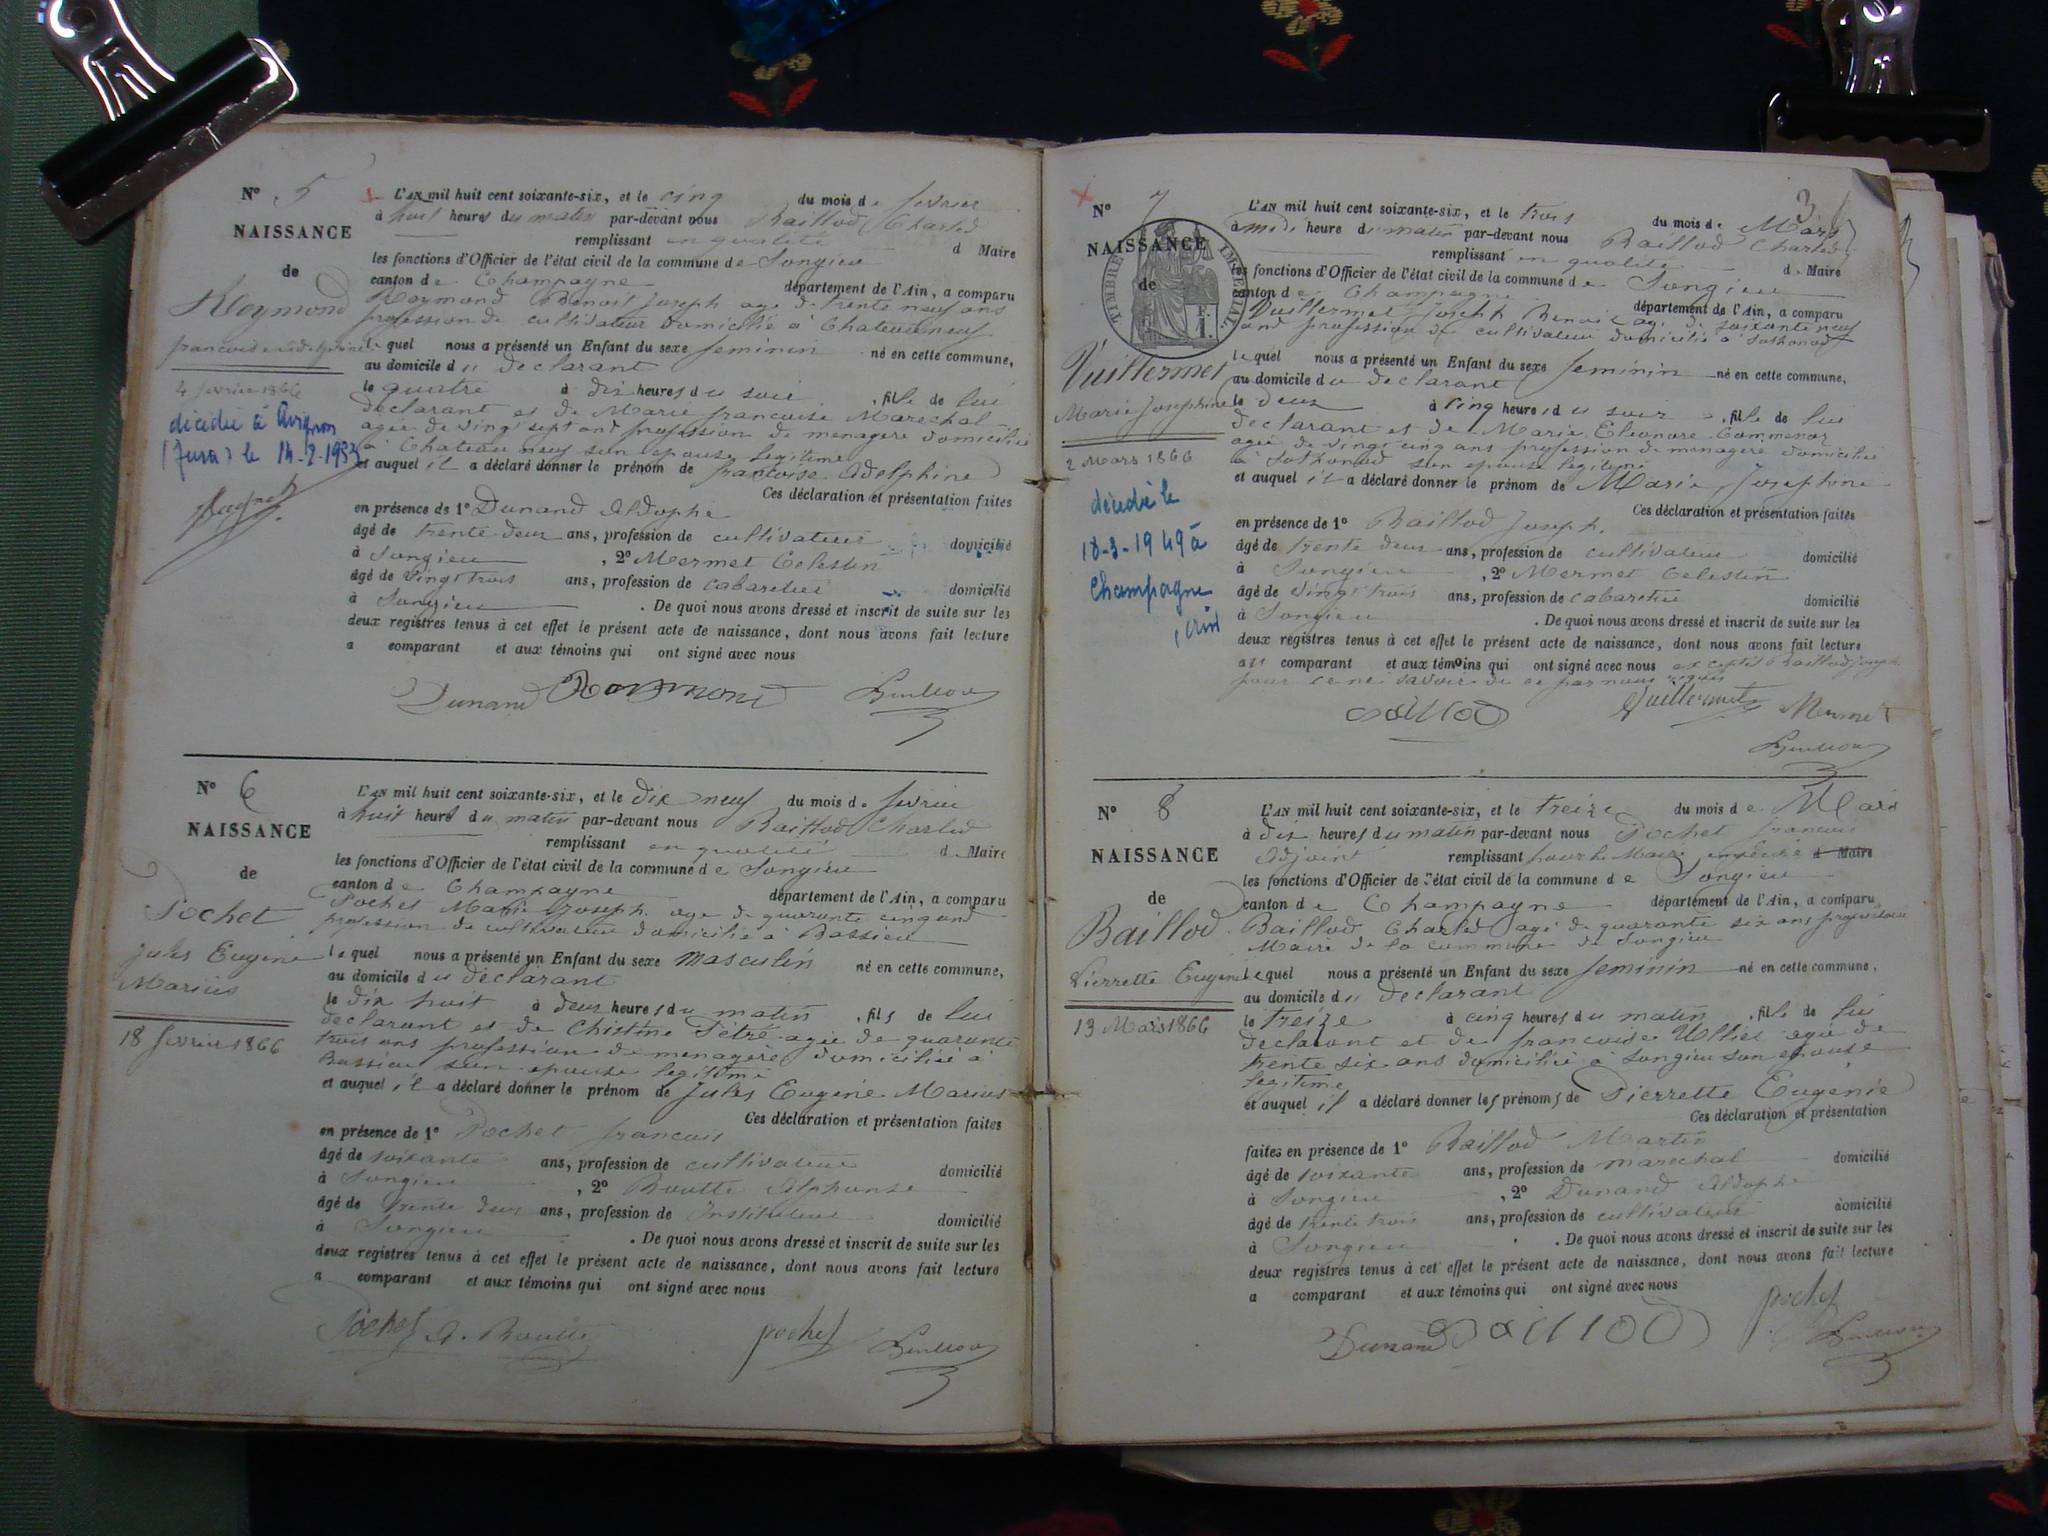 N° 5
NAISSANCE
de
Reymond
françoise adelphine
4 février 1866
décédée à Avignon
(Jura) le 14-2-193
L'AN mil huit cent soixante-six, et le cinq du mois de fevrier
à huit heures du matin par-devant nous Baillod Charles
remplissant en qualité d Maire
les fonctions d'Officier de l'état civil de la commune de Songieu
canton de Champagne département de l'Ain, a comparu
Reymond Benoit Joseph age de trente neuf ans
profession de cultivateur domicilié à Chateauneuf
le quel nous a présenté un Enfant du sexe feminin né en cette commune,
au domicile du declarant
le quatre à dix heures du soir , fille de lui
declarant et de Marie francoise Marechal
agée de vingt sept ans profession de menagere domiciliée
à Chateau neuf son epouse legitime
et auquel il a déclaré donner le prénom de françoise Adelphine
Ces déclaration et présentation faites
en présence de 1° Dunand Aldophe
âgé de trente deux ans, profession de cultivateur domicilié
à Songieu , 2° Mermet Celestin
âgé de vingt trois ans, profession de cabaretier domicilié
à Songieu . De quoi nous avons dressé et inscrit de suite sur les
deux registres tenus à cet effet le présent acte de naissance, dont nous avons fait lecture
a comparant et aux témoins qui ont signé avec nous
Dunand Raymond
N° 6
NAISSANCE
de
Pochet
Jules Eugène
Marius
18 fevrier 1866
L'AN mil huit cent soixante-six, et le dix neuf du mois de fevrier
à huit heures du matin par-devant nous Baillod Charles
remplissant en qualité d Maire
les fonctions d'Officier de l'état civil de la commune de Songieu
canton de Champagne département de l'Ain, a comparu
Pochet Marie Joseph age de quarante cinq ans
profession de cultivateur domicilié à Bassieu
le quel nous a présenté un Enfant du sexe masculin né en cette commune,
au domicile du déclarant
le dix huit à deux heures du matin , fils de lui
declarant et de Chistine Pétré agée de quarante
trois ans profession de menagère domiciliée à
Bassieu son epouse legitime
et auquel il a déclaré donner le prénom de Jules Eugène Marius
Ces déclaration et présentation faites
en présence de 1° Pochet francois
âgé de soixante ans, profession de cultivateur domicilié
à Songieu , 2° Boutte Alphonse
âgé de trente deux ans, profession de Instituteur domicilié
à Songieu . De quoi nous avons dressé et inscrit de suite sur les
deux registres tenus à cet effet le présent acte de naissance, dont nous avons fait lecture
a comparant et aux témoins qui ont signé avec nous
Pochet A. Boutte pochet
3
N° 7
NAISSANCE
de
TIMBRE IMPERIAL
Vuillermet
Marie Josephine
2 Mars 1866
décédé le
18-3-1949 à
Champagne
(Ain)
L'AN mil huit cent soixante-six, et le trois du mois de Mars
à midi heure du matin par-devant nous Baillod Charles
remplissant en qualité de Maire
les fonctions d'Officier de l'état civil de la commune de Songieu
canton de Champagne département de l'Ain, a comparu
Vuillermet Joseph Benoit agé de soixante neuf
ans profession de cultivateur domicilié à Sothonod
le quel nous a présenté un Enfant du sexe feminin né en cette commune,
au domicile du declarant
le deux à cinq heures du soir , fille de lui
declarant et de Marie Eleonore Commenar
agée de vingt cinq ans profession de menagere domiciliée
à Sothonod son epouse legitime
et auquel il a déclaré donner le prénom de Marie Josephine
Ces déclaration et présentation faites
en présence de 1° Baillod Joseph
âgé de trente deux ans, profession de cultivateur domicilié
à Songieu , 2° Mermet Celestin
âgé de vingt trois ans, profession de cabaretier domicilié
à Songieu . De quoi nous avons dressé et inscrit de suite sur les
deux registres tenus à cet effet le présent acte de naissance, dont nous avons fait lecture
au comparant et aux témoins qui ont signé avec nous excepté Baillod Joseph
pour ce ne savoir de ce par nous requis
Baillod Vuillermet Mermet
N° 8
NAISSANCE
de
Baillod
Pierrette Eugenie
13 Mars 1866
L'AN mil huit cent soixante-six, et le treize du mois de Mars
à dix heures du matin par-devant nous Pochet francois
Adjoint remplissant pour le Maire empeché d Maire
les fonctions d'Officier de l'état civil de la commune de Songieu
canton de Champagne département de l'Ain, a comparu
Baillod Charles agé de quarante six ans profession
Maire de la commune de Songieu
le quel nous a présenté un Enfant du sexe feminin né en cette commune,
au domicile du declarant
le treize à cinq heures du matin , fille de lui
declarant et de francoise Ulliel agée de
trente six ans domiciliée à Songieu son epouse
legitime
et auquel il a déclaré donner les prénoms de Pierrette Eugenie
Ces déclaration et présentation
faites en présence de 1° Baillod Martin
âgé de soixante ans, profession de marechal domicilié
à Songieu , 2° Dunand Aldophe
âgé de trente trois ans, profession de cultivateur domicilié
à Songieu . De quoi nous avons dressé et inscrit de suite sur les
deux registres tenus à cet effet le présent acte de naissance, dont nous avons fait lecture
a comparant et aux témoins qui ont signé avec nous
Dunand Baillod pochet